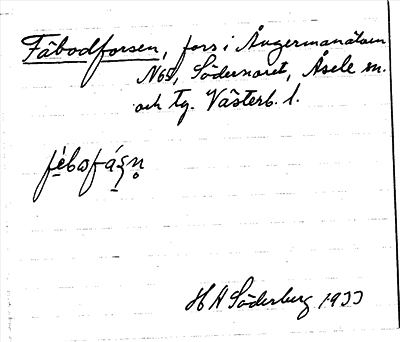 Fäbodforsen, fors i Ångermanälven
Södernoret, Åsele sn.
och tg. Västerb. l.
H A Söderberg 1933